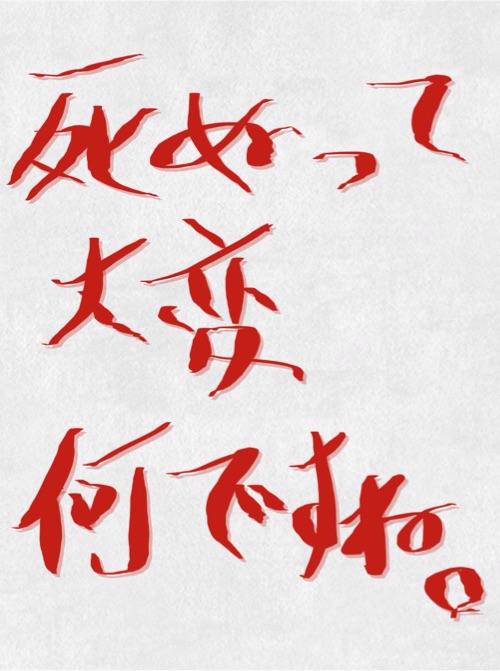 死ぬって
大変
何ですね。